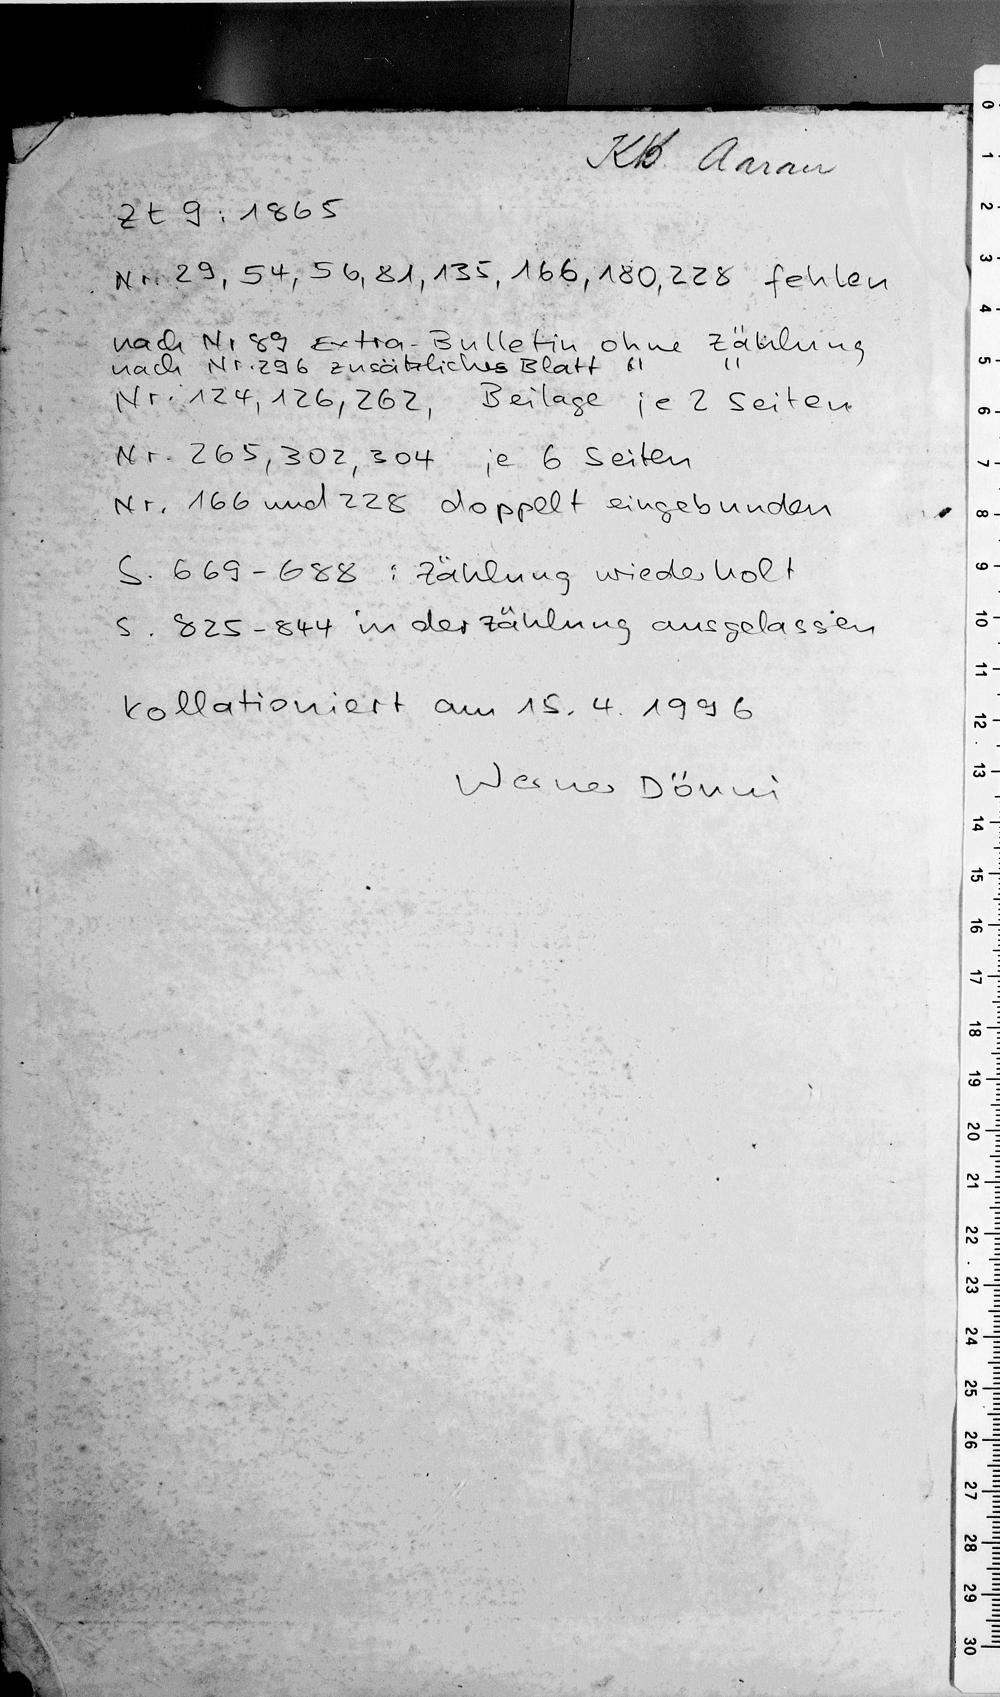 KB Aarau
Zt 9 : 1865
Nr. 29, 54, 56, 81, 135, 166, 180, 228 fehlen
nach Nr 89 Extra-Bulletin ohne Zählung
nach Nr. 296 zusätzliches Blatt " "
Nr. 124, 126, 262, Beilage je 2 Seiten
Nr. 265, 302, 304 je 6 Seiten
Nr. 166 und 228 doppelt eingebunden
S. 669-688 : Zählung wiederholt
S. 825-844 in der Zählung ausgelassen
Kollationiert am 15. 4. 1996
Werner Dönni
0
1
2
3
4
5
6
7
8
9
10
11
12
13
14
15
16
17
18
19
20
21
22
23
24
25
26
27
28
29
30